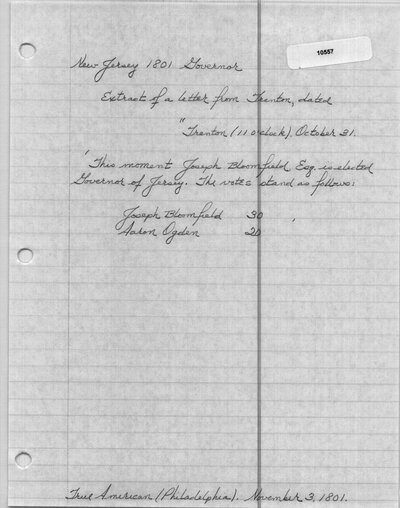 10557
New Jersey 1801 Governor
Extract of a letter from Trenton, dated
"Trenton (11 o'clock), October 31.
'This moment Joseph Bloomfield Esq. is elected
Governor of Jersey. The votes stand as follows:
Joseph Bloomfield 30
Aaron Ogden 20
True American (Philadelphia). November 3, 1801.